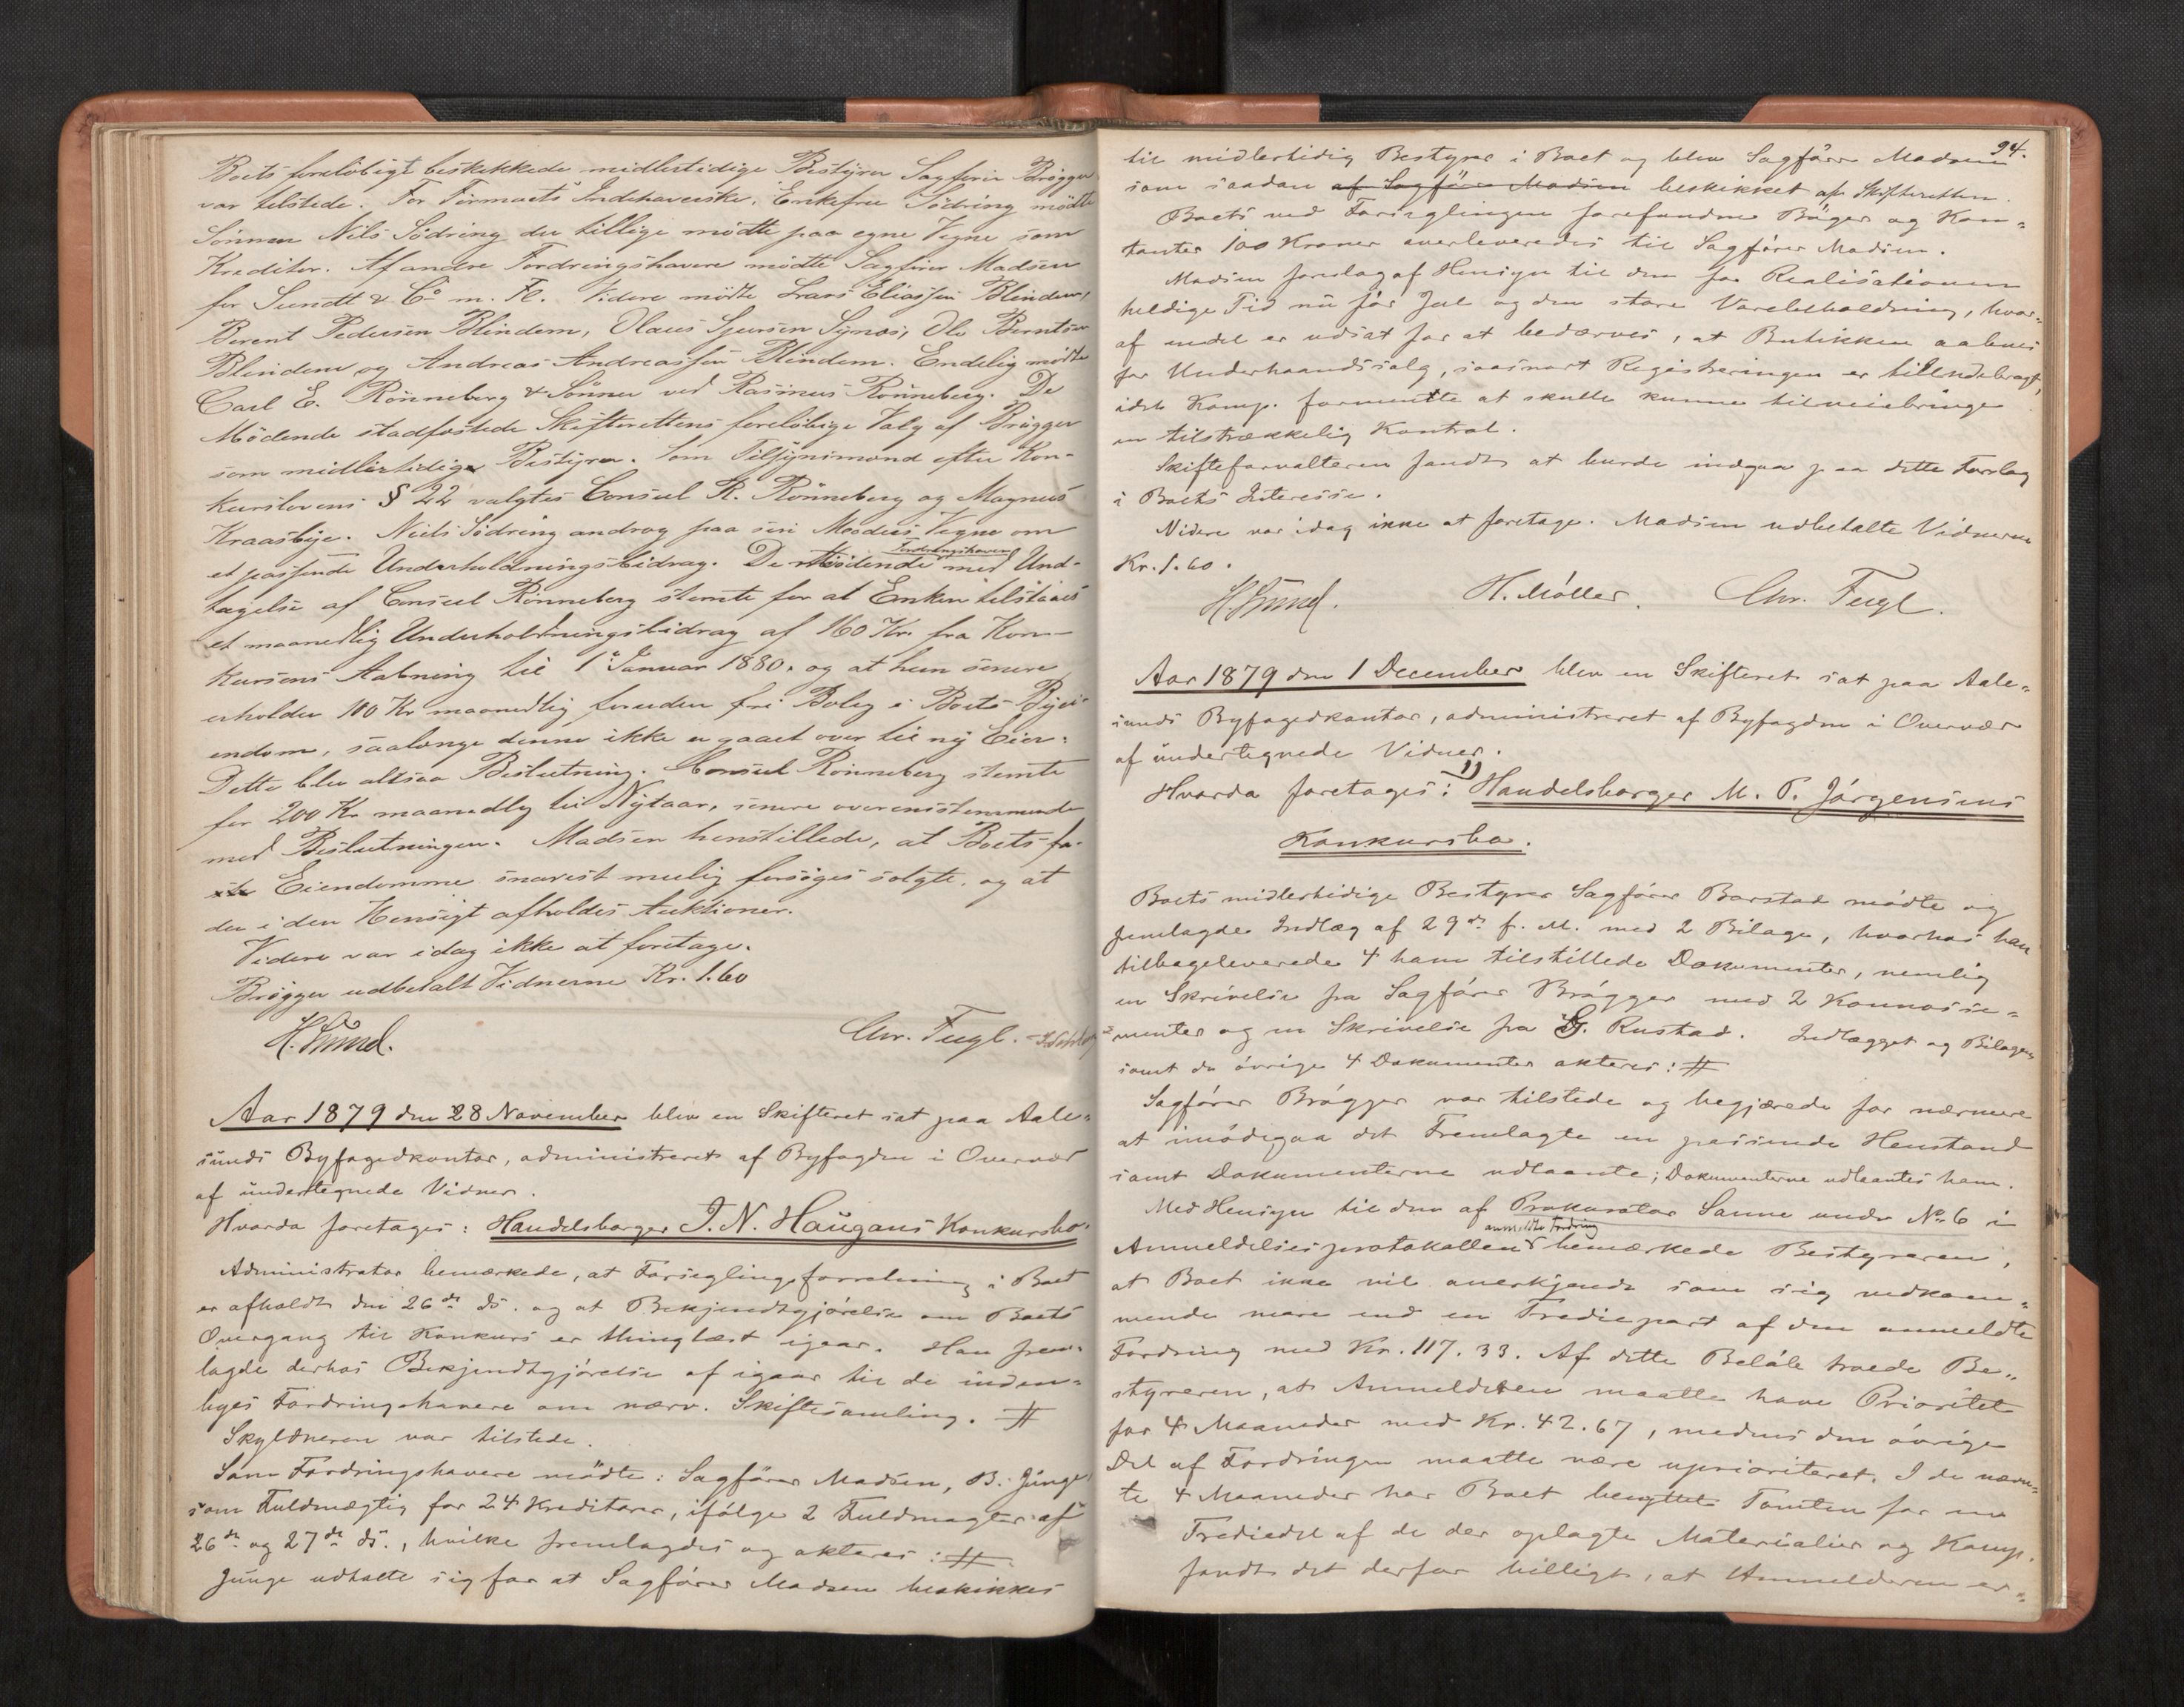 Boets foreløbigt beskikkede midlertidige Bestyrer Sagfører Brøgger
var tilstede. For Firmaets Indehaverske, Enkefru Södring mödte
Sönnen Nils Södring der tillige mödte paa egne Vegne som
Kreditor. Af andre Fordringshavere mödte Sagfører Madsen
for Sundt & Co m. Fl. Videre mödte Lars Eliassen Blindem,
Berent Pedersen Blindem, Olaus Sjursen Synæs, Ole Berntsen
Blindem og Andreas Andreassen Blindem. Endelig mödte
Carl E. Rönneberg & Sönner ved Rasmus Rönneberg. De
Mödende stadfæstede Skifterettens foreløbige Valg af Brøgger
som midlertidig Bestyrer. Som Tilsynsmænd efter Kon-
kurslovens § 22 valgtes Consul R. Rönneberg og Magnus
Kraasbye. Niels Södring androg paa sin Moders Vegne om
et passende Underholdningsbidrag. De mødende Fordringshavere med Und-
tagelse af Consul Rönneberg stemte for at Enken tilstaaes
et maanedlig Underholdningsbidrag af 160 Kr. fra Kon-
kursens Aabning til 1 Januar 1880, og at hun senere
erholder 100 Kr maanedlig foruden fri Bolig i Boets Byei-
endom, saalænge denne ikke er gaaet over til ny Eier.
Dette blev altsaa Beslutning. Consul Rönneberg stemte
for 200 Kr maanedlig til Nytaar, senere overensstemmende
med Beslutningen. Madsen henstillede, at Boets fa-
ste Eiendomme snarest mulig forsøges solgte, og at
der i den Hensigt afholdes Auktioner.
Videre var idag ikke at foretage.
Brøgger udbetalt Vidnerne Kr. 1.60
H. Lund. Chr. Fugl.
Aar 1879 den 28 November blev en Skifteret sat paa Aale-
sunds Byfogedkontor, administreret af Byfogden i Overvær
af undertegnede Vidner.
Hvorda foretages: Handelsborger J. N. Haugans Konkursbo.
Administrator bemærkede, at Forseglingsforretning i Boet
er afholdt den 26de ds. og at Bekjendtgjørelse om Boets
Overgang til Konkurs er thinglæst igaar. Han frem-
lagde derhos Bekjendtgjørelse af igaar til de inden-
byes Fordringshavere om nærv. Skiftesamling. #
Skyldneren var tilstede.
Som Fordringshavere mødte: Sagfører Madsen, B. Junge
som Fuldmægtig for 24 Kreditorer, ifølge 2 Fuldmagter af
26de og 27de ds., hvilke fremlagdes og akteres: #
Junge udtalte sig for at Sagfører Madsen beskikkes
94.
til midlertidig Bestyrer i Boet og blev Sagfører Madsen
som saadan af Sagfører Madsen beskikket af Skifteretten.
Boets ved Forseglingen forefundne Bøger og Kon-
tanter 100 Kroner overleveredes til Sagfører Madsen.
Madsen foreslog af Hensyn til den for Realisationen
heldige Tid nu før Jul og den store Varebeholdning, hvor-
af endel er udsat for at bedærves, at Butikken aabnes
for Underhaandssalg, saasnart Registreringen er tilendebragt,
idet Komp. formente at skulle kunne tilveiebringe
en tilstrækkelig Kontrol.
Skifteforvalteren fandt at burde indgaa paa dette Forslag
i Boets Interesse.
Videre var idag ikke at foretage. Madsen udbetalte Vidnerne
Kr. 1.60.
H. Lund. H. Møller. Chr. Fugl.
Aar 1879 den 1 December blev en Skifteret sat paa Aale-
sunds Byfogedkontor, administreret af Byfogden i Overvær
af undertegnede Vidner.
Hvorda foretages: 1) Handelsborger M. P. Jørgensens
Konkursbo.
Boets midlertidige Bestyrer Sagfører Barstad mødte og
fremlagde Indlæg af 29de f. M. med 2 Bilage, hvorhos han
tilbageleverede 4 ham tilstillede Dokumenter, nemlig
en Skrivelse fra Sagfører Brøgger med 2 Konnosse-
menter og en Skrivelse fra G. Rustad. Indlægget og Bilagene
samt de øvrige 4 Dokumenter akteres: #
Sagfører Brøgger var tilstede og begjærede for nærmere
at imødegaa det Fremlagte en passende Henstand
samt Dokumenterne udlaante; Dokumenterne udlaantes ham.
Med Hensyn til den af Prokurator Sanne under No 6 i
Anmeldelsesprotokollen anmeldte Fordring bemærkede Bestyreren,
at Boet ikke vil anerkjende som sig vedkom-
mende mere end en Trediepart af den anmeldte
Fordring med Kr. 117.33. Af dette Beløb troede Be-
styreren, at Anmelderen maatte have Prioritet
for 4 Maaneder med Kr. 42.67, medens den øvrige
Del af Fordringen maatte være uprioriteret. I de nævn-
te 4 Maaneder har Boet benyttet Tomten for en
Trediedel af de der oplagte Materialier og Komp.
fandt det derfor billigt, at Anmelderen er-